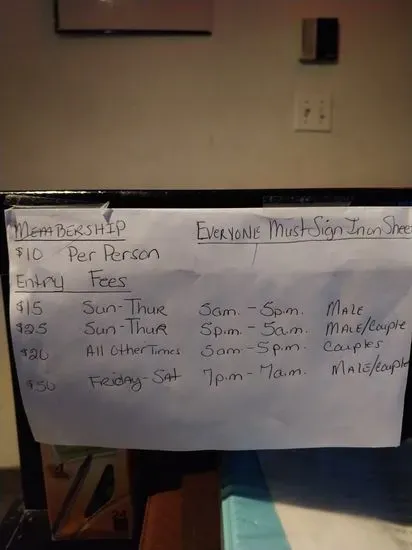 MEMBERSHIP
EVERYONE Must Sign In on Shee
$10 Per Person
Entry Fees
$15 Sun-Thur 5am. - 5p.m. MALE
$25 Sun-Thur 5p.m. - 5a.m. MALE/Couple
$20 All Other Times 5am - 5p.m. Couples
$50 Friday-Sat 7p.m - 7a.m. MALE/Couple